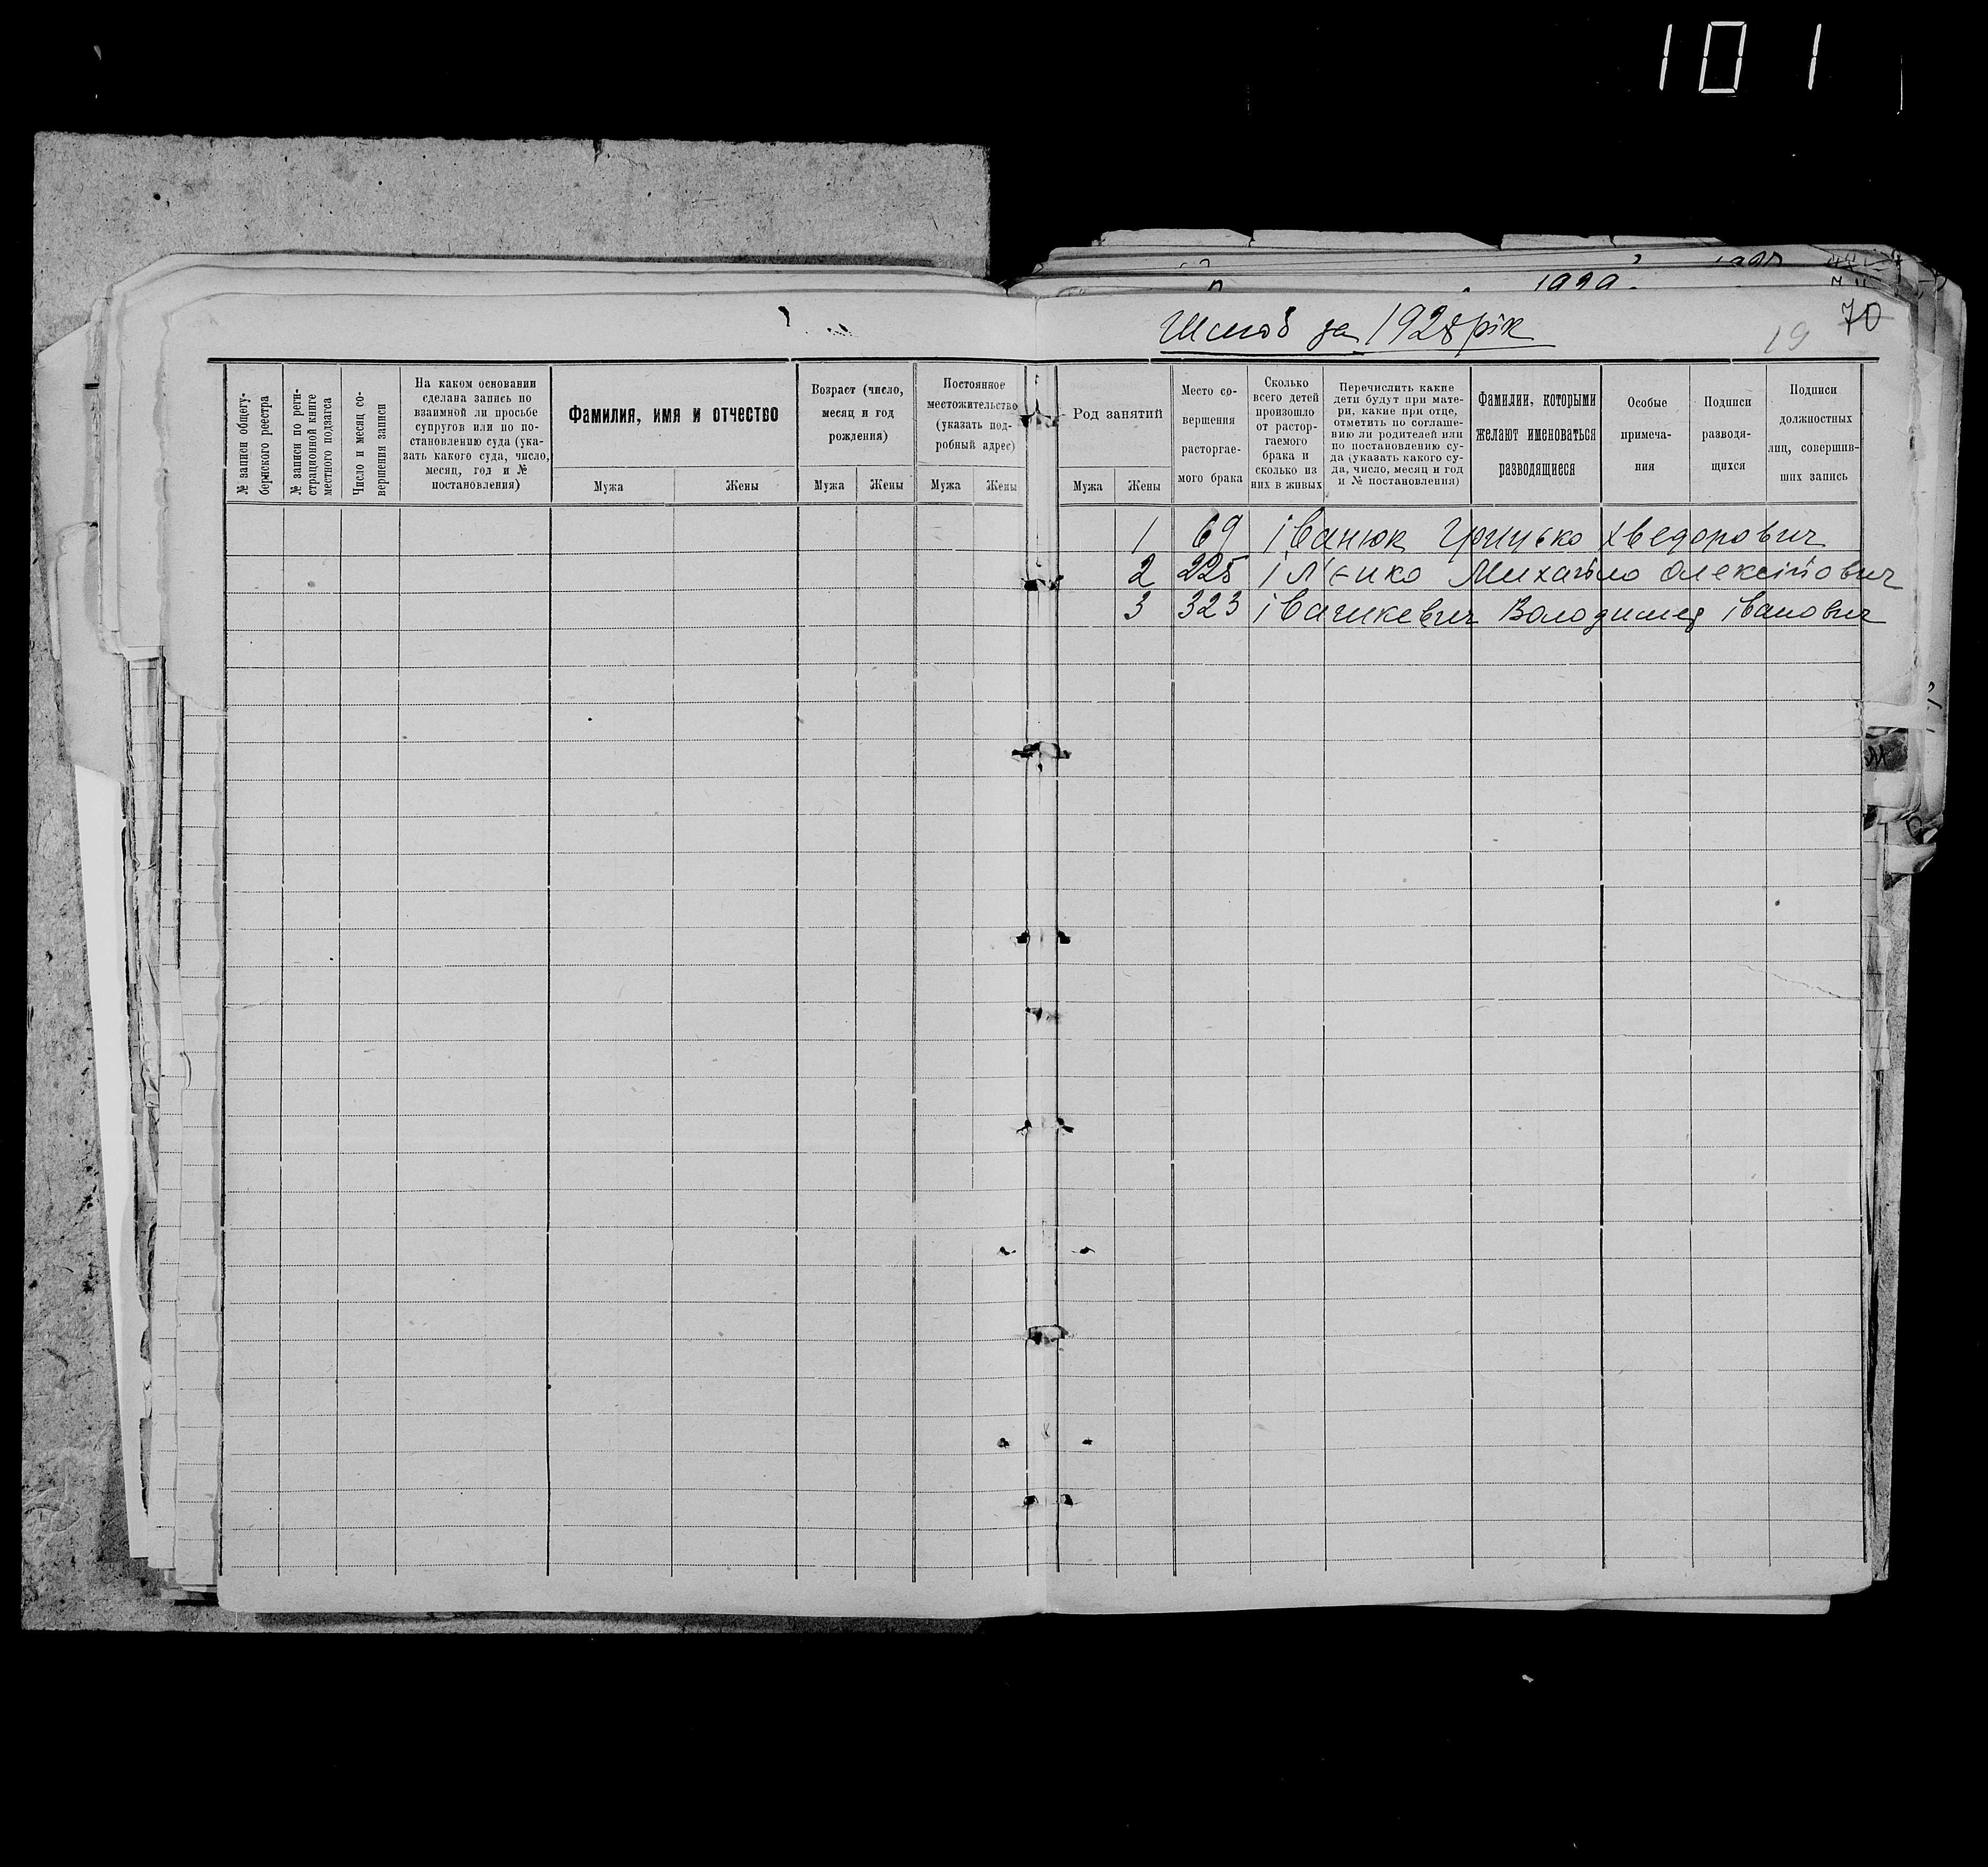 101
Шлюб за 1928 рік
19 70
№ записи общегу-
бернского реестра
№ записи по реги-
страционной книге
местного подзагса
Число и месяц со-
вершения записи
На каком основании
сделана запись по
взаимной ли просьбе
супругов или по по-
становлению суда (ука-
зать какого суда, число,
месяц, год и №
постановления)
Фамилия, имя и отчество
Мужа Жены
Возраст (число,
месяц и год
рождения)
Мужа Жены
Постоянное
местожительство
(указать под-
робный адрес)
Мужа Жены
Род занятий
Мужа Жены
Место со-
вершения
расторгае-
мого брака
Сколько
всего детей
произошло
от растор-
гаемого
брака и
сколько из
них в живых
Перечислить какие
дети будут при мате-
ри, какие при отце,
отметить по соглаше-
нию ли родителей или
по постановлению су-
да (указать какого су-
да, число, месяц и год
и № постановления)
Фамилии, которыми
желают именоваться
разводящиеся
Особые
примеча-
ния
Подписи
разводя-
щихся
Подписи
должностных
лиц, совершив-
ших запись
1 69 Іванюк Грицько Хведорович
2 225 Михайло Олексійович
3 323 Івашкевич Володимир Іванович